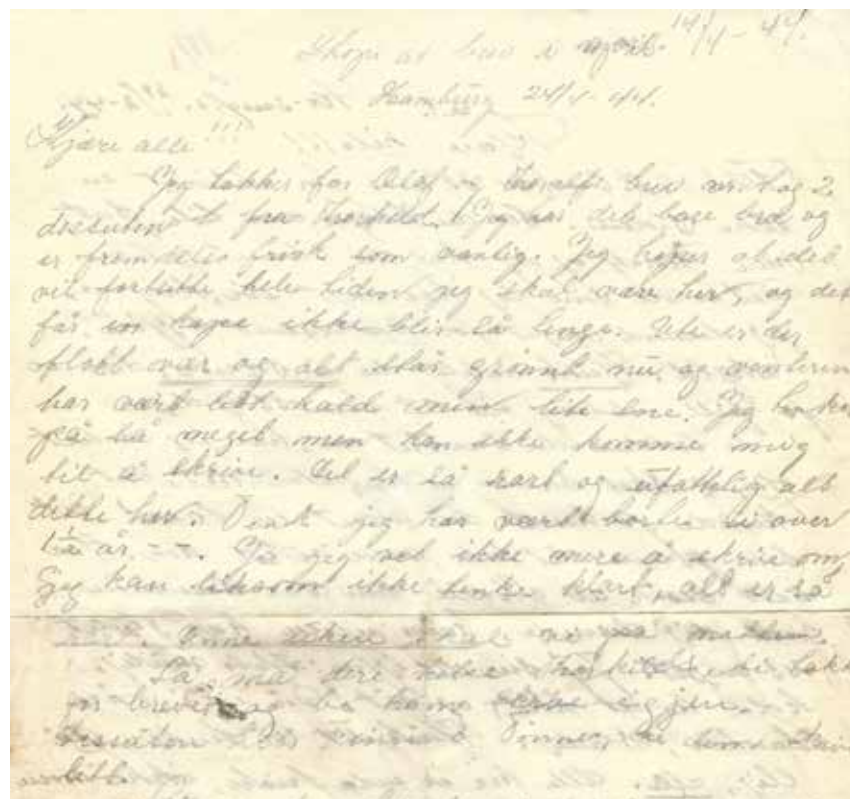 brev i 14/4-44.
Hamburg 24/4-44.
Kjære alle!!!
Jeg takker for Olaf og brev og 2.
dessuten 1 fra Jeg har det bare bra og
er fremdeles frisk som vanlig. Jeg at det
vil hele tiden jeg skal være her, og det
får en ikke blir så lenge. Ute er det
flott vær og alt står grønnt nu, og vinteren
har vært litt kald men lite sne. Jeg tenker
på så meget men kan ikke komme mig
til å skrive. Det er så rart og ufattelig alt
dette her. Tenk jeg har vært borte i over
to år. - -. Ja jeg vet ikke mere å skrive om,
Jeg kan liksom ikke tenke klart, alt er så
. Denne uken skal vi ha
Så må dere hilse og takke
for brevet og be ham skrive igjen.
Dessuten
litt.